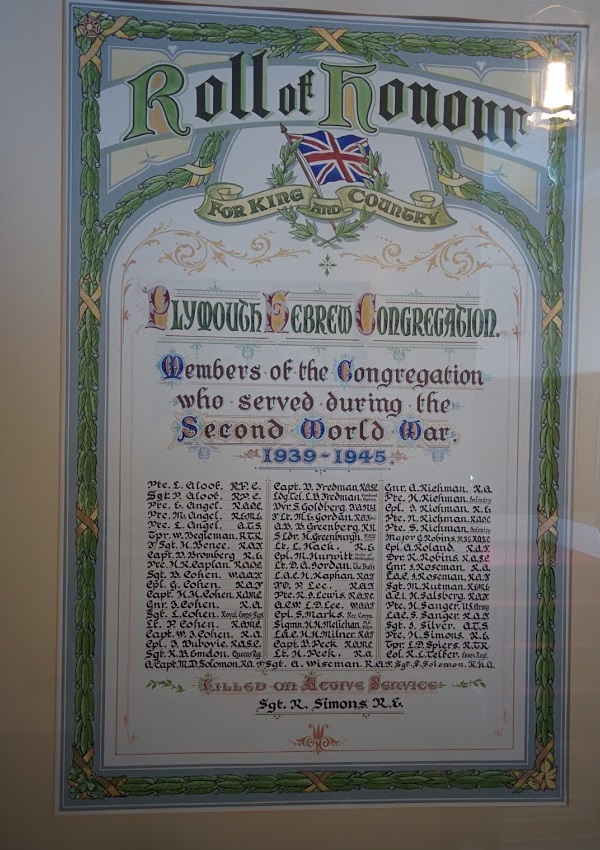 Roll of Honour
FOR KING AND COUNTRY
PLYMOUTH HEBREW CONGREGATION.
Members of the Congregation
who served during the
Second World War.
1939-1945.
Pte. L. Aloof. R.P.C.
Sgt. P. Aloof. R.P.C.
Pte. E. Angel. R.A.O.C.
Pte. M. Angel. R.E.M.E.
Pte. L. Angel. A.T.S.
Tpr. W. Begleman. R.T.R.
F/Sgt. H. Bence. R.A.F.
Capt. D. Bromberg R.E.
Pte. H.H. Caplan R.A.O.C.
Sgt. B. Cohen. W.A.A.F.
Cpl. G. Cohen. R.A.F.
Capt. H.H. Cohen. R.A.M.C.
Gnr. J. Cohen. R.A.
Sgt. L. Cohen. Royal Corps Sigs
Lt. P. Cohen. R.A.M.C.
Capt. W.J. Cohen. R.A.
Cpl. A. Dubovie. R.A.S.C.
Sgt. K.A. Emdon. Queens Reg.
A/Capt. M.D. Solomon. R.A.
Capt. D. Fredman. R.A.S.C.
Ldg. Col. L.B. Fredman.
Dvr. S. Goldberg.
F/Lt. M.E. Gordan.
A.B. B. Greenberg. R.N.
S/Ldr. H. Greenburgh.
Lt. L. Hack. R.E.
Cpl. M. Hurwitt
Lt. D. A. Jordan. The Buffs
L.A.C. H. Kaphan. R.A.F.
P.O. P. Lee. R.A.F.
Pte. R.J. Lewis. R.A.P.C.
A.C.W. L.D. Lee. W.A.A.F.
Cpl. S. Marks. Rec. Corps.
Sigmn. H.H. Mesichan.
L.A.C. H.H. Milner. R.A.F.
Capt. B. Peck R.A.M.C.
Lt. H. Peck. R.A.
F/Sgt. A. Wiseman. R.A.F.
Gnr. A. Richman. R.A.
Pte. H. Richman. Infantry
Cpl. J. Richman. R.E.
Pte. N. Richman. R.A.O.C.
Pte. S. Richman. Infantry
Major G. Robins.
Cpl. A. Roland. R.A.F.
Dvr. R. Robins. R.A.S.C.
Gnr. J. Roseman. R.A.
L.A.C. J. Roseman. R.A.F.
Sgt. M. Rutman. R.E.M.E.
A.C.1. H. Salsberg. R.A.F.
Pte. H. Sanger. U.S. Army
L.A.C. S. Sanger. R.A.F.
Sgt. J. Silver. A.T.S.
Pte. H. Simons. R.E.
Tpr. L.D. Spiers. R.T.R.
Col. R.L. Telfer. Essex Regt.
Sgt. S. Solomon. R.H.A.
KILLED ON ACTIVE SERVICE
Sgt. R. Simons. R.E.